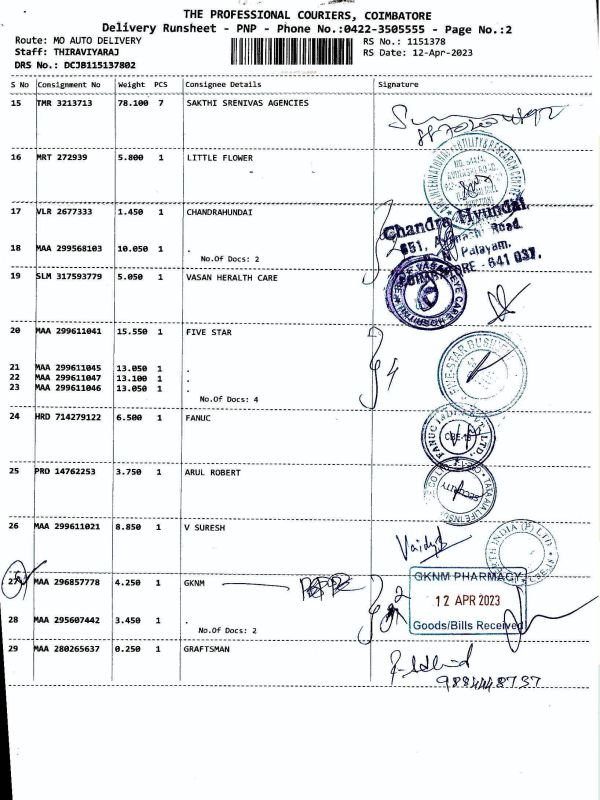 THE PROFESSIONAL COURIERS, COIMBATORE
Delivery Runsheet - PNP - Phone No.:0422-3505555 - Page No.:2
Route: MO AUTO DELIVERY RS No.: 1151378
Staff: THIRAVIYARAJ RS Date: 12-Apr-2023
DRS No.: DCJB115137802
S No Consignment No Weight PCS Consignee Details Signature
15 TMR 3213713 78.100 7 SAKTHI SRENIVAS AGENCIES
16 MRT 272939 5.800 1 LITTLE FLOWER
17 VLR 2677333 1.450 1 CHANDRAHUNDAI
Chandra Hyundai
851, Avinashi Road
Palayam.
COIMBATORE - 641 037.
18 MAA 299568103 10.050 1 .
No.Of Docs: 2
19 SLM 317593779 5.050 1 VASAN HERALTH CARE
20 MAA 299611041 15.550 1 FIVE STAR
21 MAA 299611045 13.050 1 .
22 MAA 299611047 13.100 1 .
23 MAA 299611046 13.050 1 .
No.Of Docs: 4
4
24 HRD 714279122 6.500 1 FANUC
25 PRO 14762253 3.750 1 ARUL ROBERT
SECURITY
26 MAA 299611021 8.850 1 V SURESH
27 MAA 296857778 4.250 1 GKNM
GKNM PHARMACY
12 APR 2023
Goods/Bills Received
28 MAA 295607442 3.450 1 .
No.Of Docs: 2
2
29 MAA 280265637 0.250 1 GRAFTSMAN